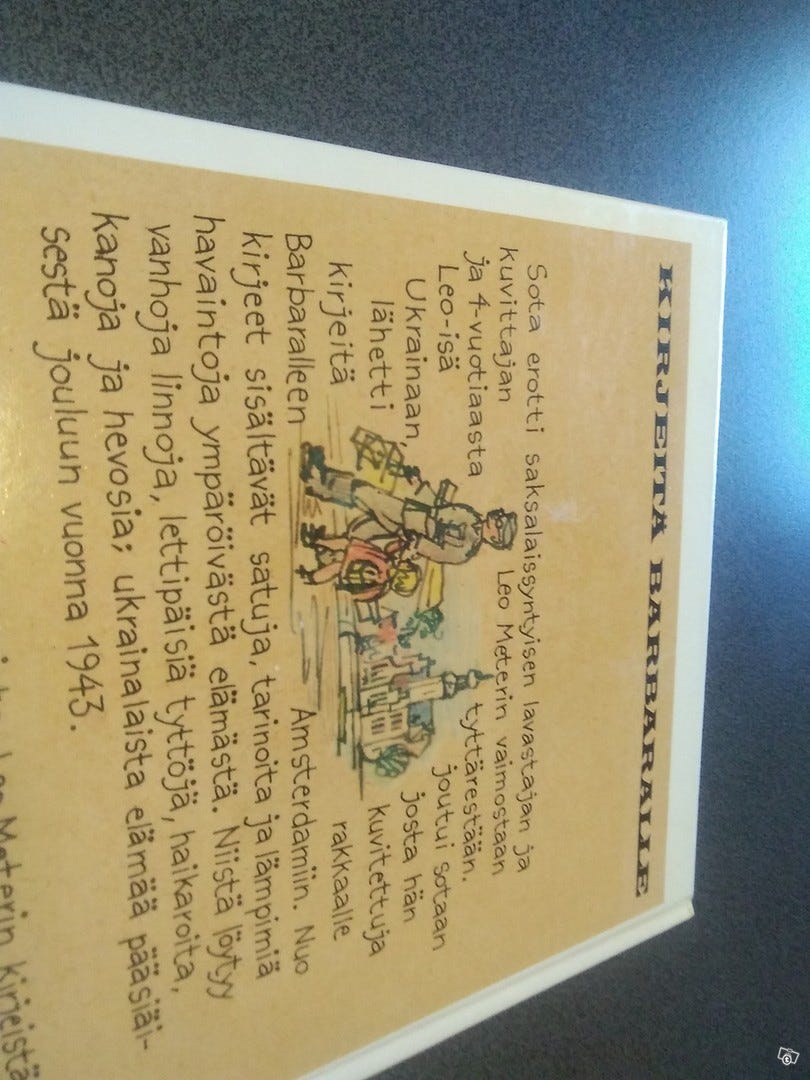 KIRJEITÄ BARBARALLE
Sota erotti saksalaissyntyisen lavastajan ja
kuvittajan Leo Meterin vaimostaan
ja 4-vuotiaasta tyttärestään.
Leo-isä joutui sotaan
Ukrainaan, josta hän
lähetti kuvitettuja
kirjeitä rakkaalle
Barbaralleen Amsterdamiin. Nuo
kirjeet sisältävät satuja, tarinoita ja lämpimiä
havaintoja ympäröivästä elämästä. Niistä löytyy
vanhoja linnoja, lettipäisiä tyttöjä, haikaroita,
kanoja ja hevosia; ukrainalaista elämää pääsiäi-
sestä jouluun vuonna 1943.
Leo Meterin kirjeistä